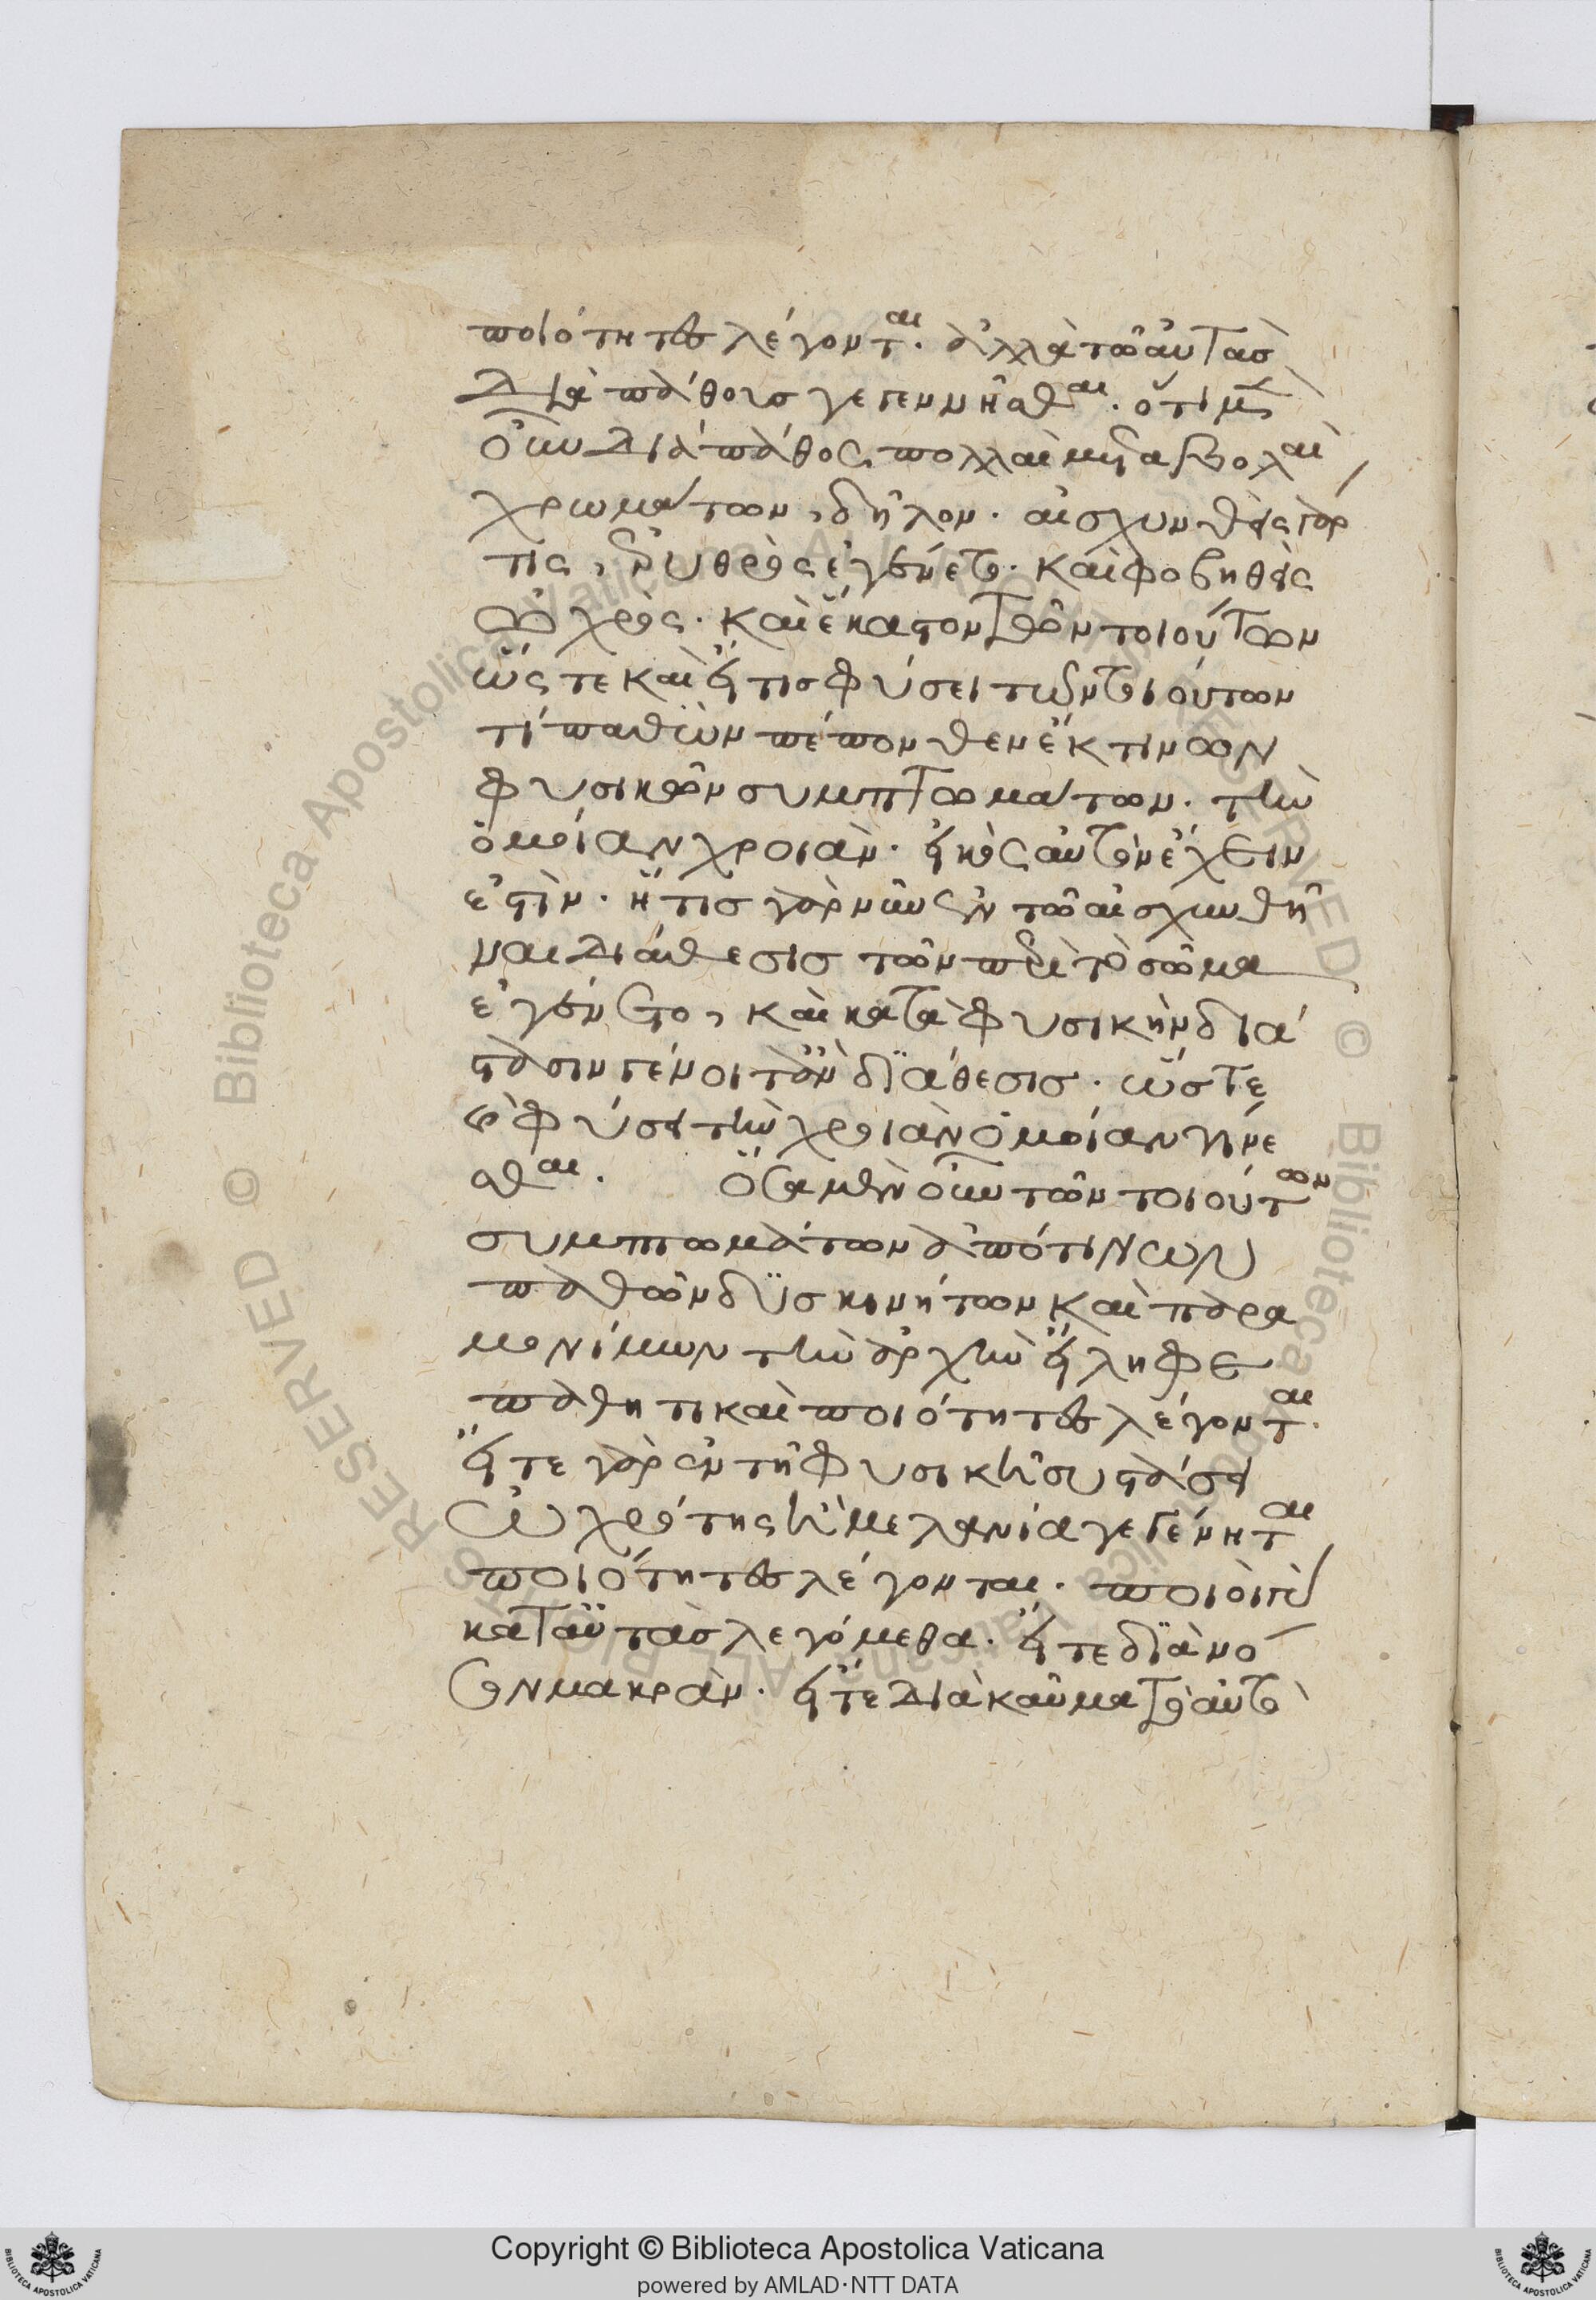 ποιότητες λέγονται. ἀλλὰ τῶ αὐτὰς
διὰ πάθους γεγεννῆσθαι. ὅτι μὲν
οὖν διὰ πάθος πολλαὶ μεταβολαὶ
χρωμάτων, δῆλον. αἰσχυνθεὶς γάρ
τις, ἐρυθρὸς ἐγένετο. καὶ φοβηθεὶς
ὠχρὸς. καὶ ἕκαστον τῶν τοιούτων
ὥς τε καὶ εἴ τις φύσει τῶν τοιούτων
τί παθῶν πέπονθεν ἔκ τινων
φυσικῶν συμπτωμάτων. τὴν
ὁμοίαν χροιὰν. εἰκὸς αὐτὸν ἔχειν
ἐστὶν. ἥτις γὰρ νῦν ἐν τῶ αἰσχυνθῆ
ναι διάθεσις τῶν περὶ τὸ σῶμα
ἐγένετο, καὶ κατὰ φυσικὴν διά
στασιν γένοιτ' ἂν διάθεσις. ὥστε
φύσει τὴν χροιὰν ὁμοίαν γίνε
σθαι. ὅσα μὲν οὖν τῶν τοιούτων
συμπτωμάτων ἀπό τινων
παθῶν δυσκινήτων καὶ παρα
μονίμων τὴν ἀρχὴν εἴληφε
παθητικαὶ ποιότητες λέγονται.
εἴτε γὰρ ἐν τῇ φυσικῇ συστάσει
ὠχρότης ἢ μελανία γεγένηται
ποιότητες λέγονται. ποιοὶ γὰρ
κατ' αὐτὰς λεγόμεθα. εἴτε διὰ νό
σον μακρὰν. εἴτε διὰ καῦμα τὸ αὐτὸ
Copyright © Biblioteca Apostolica Vaticana
powered by AMLAD·NTT DATA